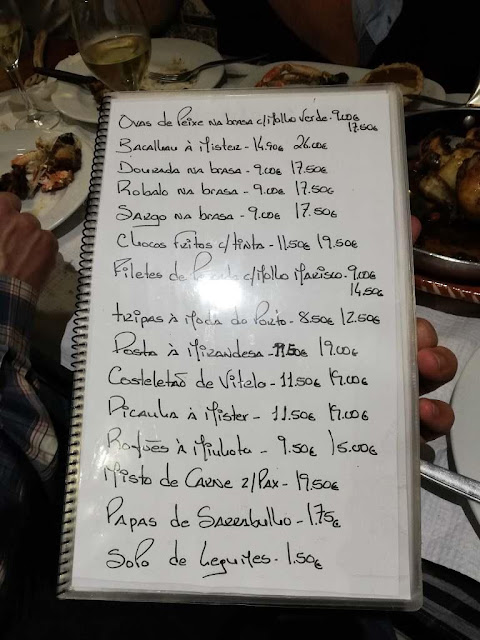 Ovas de Peixe na brasa c/Molho Verde - 9.00€
17.50€
Bacalhau à Mister - 14.90€ 26.00€
Dourada na brasa - 9.00€ 17.50€
Robalo na brasa - 9.00€ 17.50€
Sargo na brasa - 9.00€ 17.50€
Chocos Fritos c/tinta - 11.50€ 19.50€
Filetes de c/Molho Marisco - 9.00€
14.50€
Tripas à Moda do Porto - 8.50€ 12.50€
Posta à Mirandesa - 19.00€
Costeletão de Vitelo - 11.50€ 19.00€
Picanha à Mister - 11.50€ 19.00€
Rojões à Minhota - 9.50€ 15.00€
Misto de Carne 2/Pax - 19.50€
Papas de Sarrabulho - 1.75€
Sopa de Legumes - 1.50€